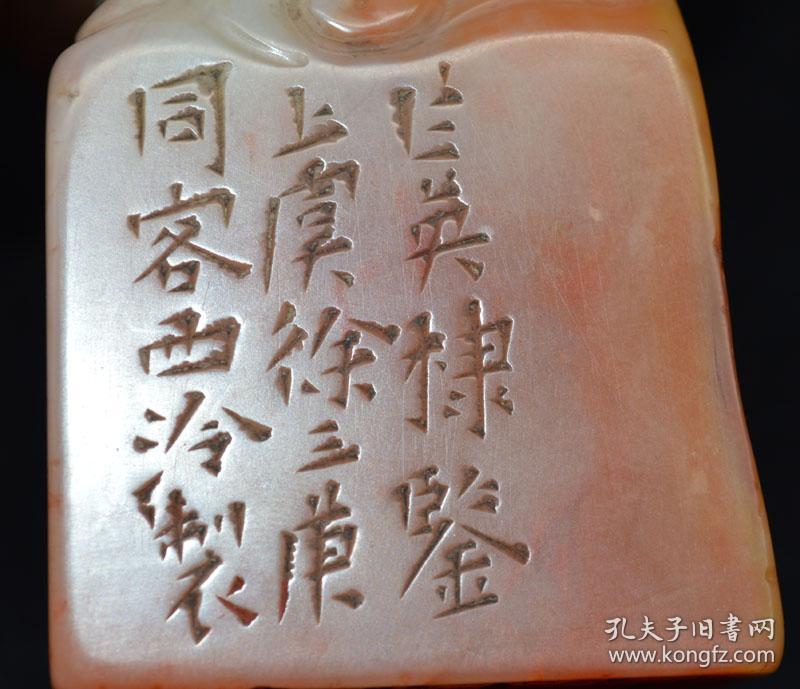 英棣鑒
上虞徐三庚
同客西泠製
孔夫子旧書网
www.kongfz.com